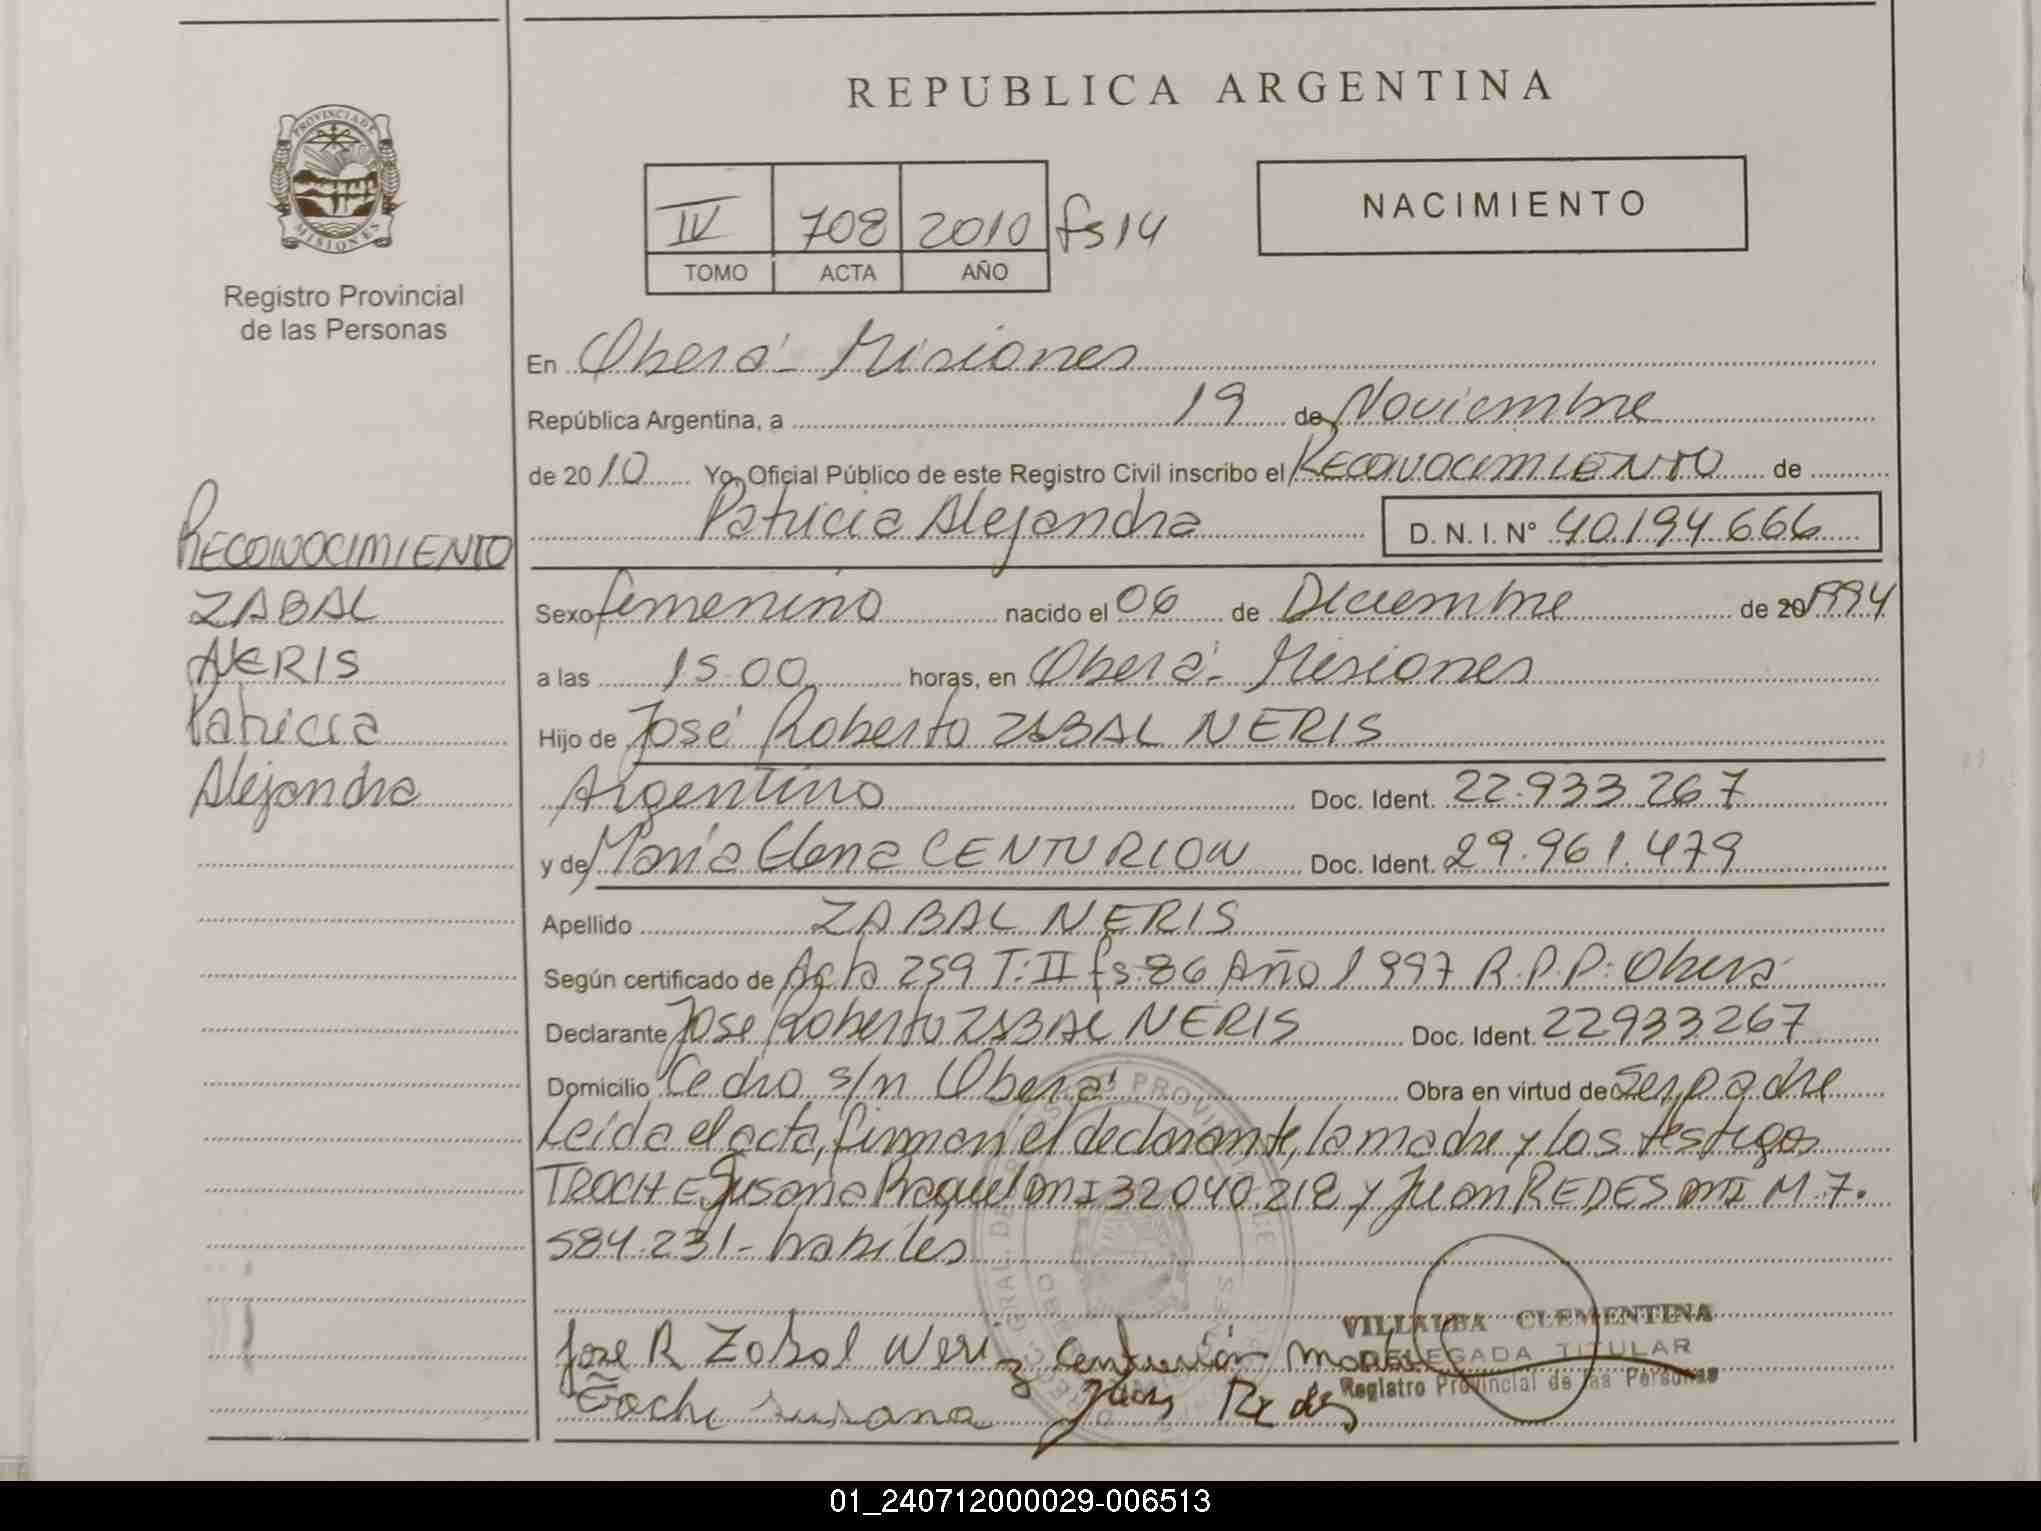 REPUBLICA ARGENTINA
PROVINCIA DE
MISIONES
Registro Provincial
de las Personas
IV 708 2010 fs 14
TOMO ACTA AÑO
NACIMIENTO
En Oberá - Misiones
República Argentina, a 19 de Noviembre
de 2010 Yo, Oficial Público de este Registro Civil inscribo el RECONOCIMIENTO de
Patricia Alejandra D. N. I. N° 40.194.666
RECONOCIMIENTO
ZABAL
NERIS
Patricia
Alejandra
Sexo femenino nacido el 06 de Diciembre de 20 1994
a las 15-00 horas, en Oberá - Misiones
Hijo de José Roberto ZABAL NERIS
Argentino Doc. Ident. 22.933.267
y de María Elena CENTURION Doc. Ident. 29.961.479
Apellido ZABAL NERIS
Según certificado de Acta 259 T: II fs. 86 Año 1997 R.P.P: Oberá
Declarante José Roberto ZABAL NERIS Doc. Ident. 22933267
Domicilio Cedro s/n Oberá Obra en virtud de ser padre
Leída el acta, firman el declarante, la madre y los testigos
TROCHE Susana Raquel DNI 32040.218 y Juan REDES DNI M. 7.
584.231- habiles
Jose R Zabal Neriz Centurión
VILLALBA CLEMENTINA
DELEGADA TITULAR
Registro Provincial de las Personas
Troche susana Juan Redes
01_240712000029-006513